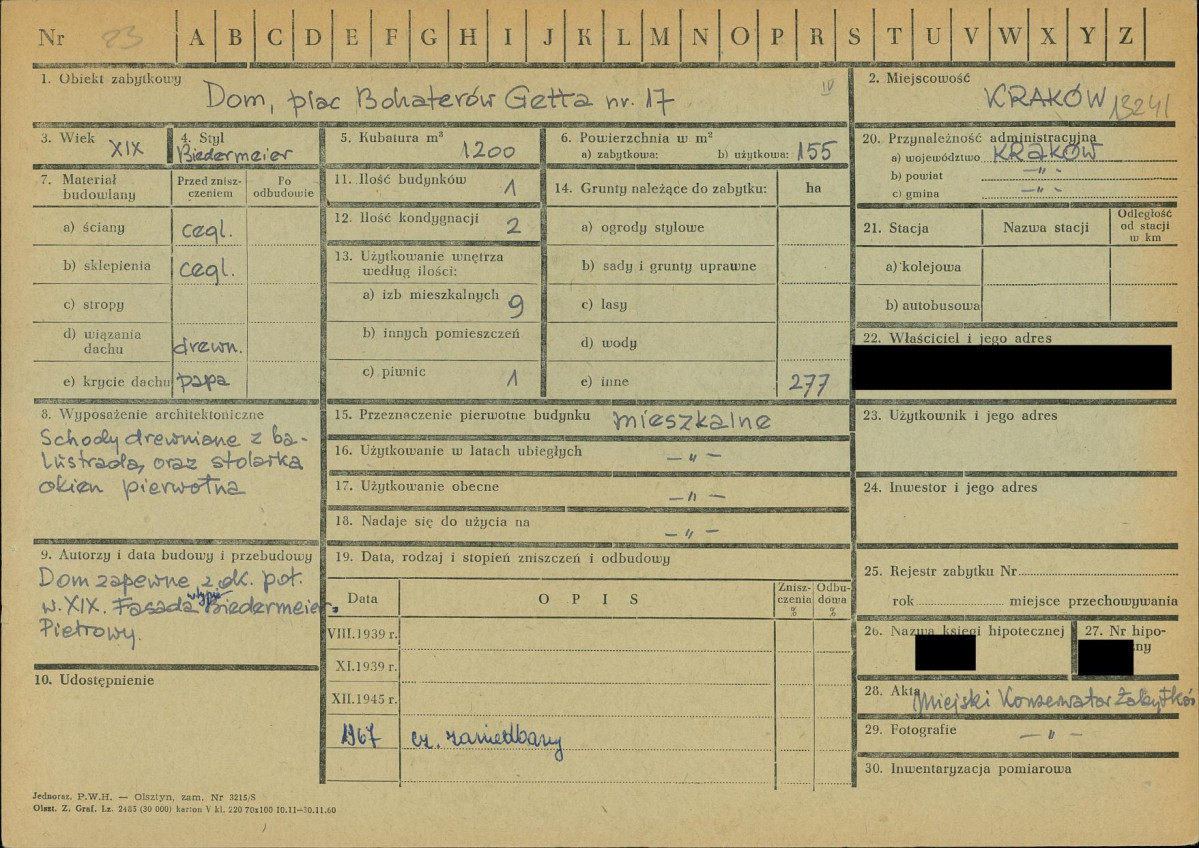 Nr 23 A B C D E F G H I J K L M N O P R S T U V W X Y Z
1. Obiekt zabytkowy
Dom, plac Bohaterów Getta nr. 17
IV
2. Miejscowość
KRAKÓW 13241
3. Wiek XIX
4. Styl
Biedermeier
5. Kubatura m³
1200
6. Powierzchnia w m²
a) zabytkowa: b) użytkowa: 155
20. Przynależność administracyjna
a) województwo KRAKÓW
b) powiat —"—
c) gmina —"—
7. Materiał budowlany
Przed zniszczeniem
Po odbudowie
a) ściany cegl.
b) sklepienia cegl.
c) stropy
d) wiązania dachu drewn.
e) krycie dachu papa
11. Ilość budynków 1
12. Ilość kondygnacji 2
13. Użytkowanie wnętrza
według ilości:
a) izb mieszkalnych 9
b) innych pomieszczeń
c) piwnic 1
14. Grunty należące do zabytku: ha
a) ogrody stylowe
b) sady i grunty uprawne
c) lasy
d) wody
e) inne 277
21. Stacja
Nazwa stacji
Odległość
od stacji
w km
a) kolejowa
b) autobusowa
22. Właściciel i jego adres
8. Wyposażenie architektoniczne
Schody drewniane z ba-
lustradą, oraz stolarka
okien pierwotna
15. Przeznaczenie pierwotne budynku mieszkalne
16. Użytkowanie w latach ubiegłych —"—
17. Użytkowanie obecne —"—
18. Nadaje się do użycia na —"—
23. Użytkownik i jego adres
24. Inwestor i jego adres
9. Autorzy i data budowy i przebudowy
Dom zapewne z ok. poł.
w. XIX. Fasada w typie Biedermeier.
Piętrowy.
10. Udostępnienie
19. Data, rodzaj i stopień zniszczeń i odbudowy
Data
OPIS
Znisz-
czenia
%
Odbu-
dowa
%
VIII.1939 r.
XI.1939 r.
XII.1945 r.
1967 cz. zaniedbany
25. Rejestr zabytku Nr
rok miejsce przechowywania
26. Nazwa księgi hipotecznej
27. Nr hipo-
zny
28. Akta Miejski Konserwator Zabytków
29. Fotografie —"—
30. Inwentaryzacja pomiarowa
Jednoraz. P.W.H. — Olsztyn, zam. Nr 3215/S
Olszt. Z. Graf. Lz. 2485 (30 000) karton V kl. 220 70x100 10.11—30.11.60